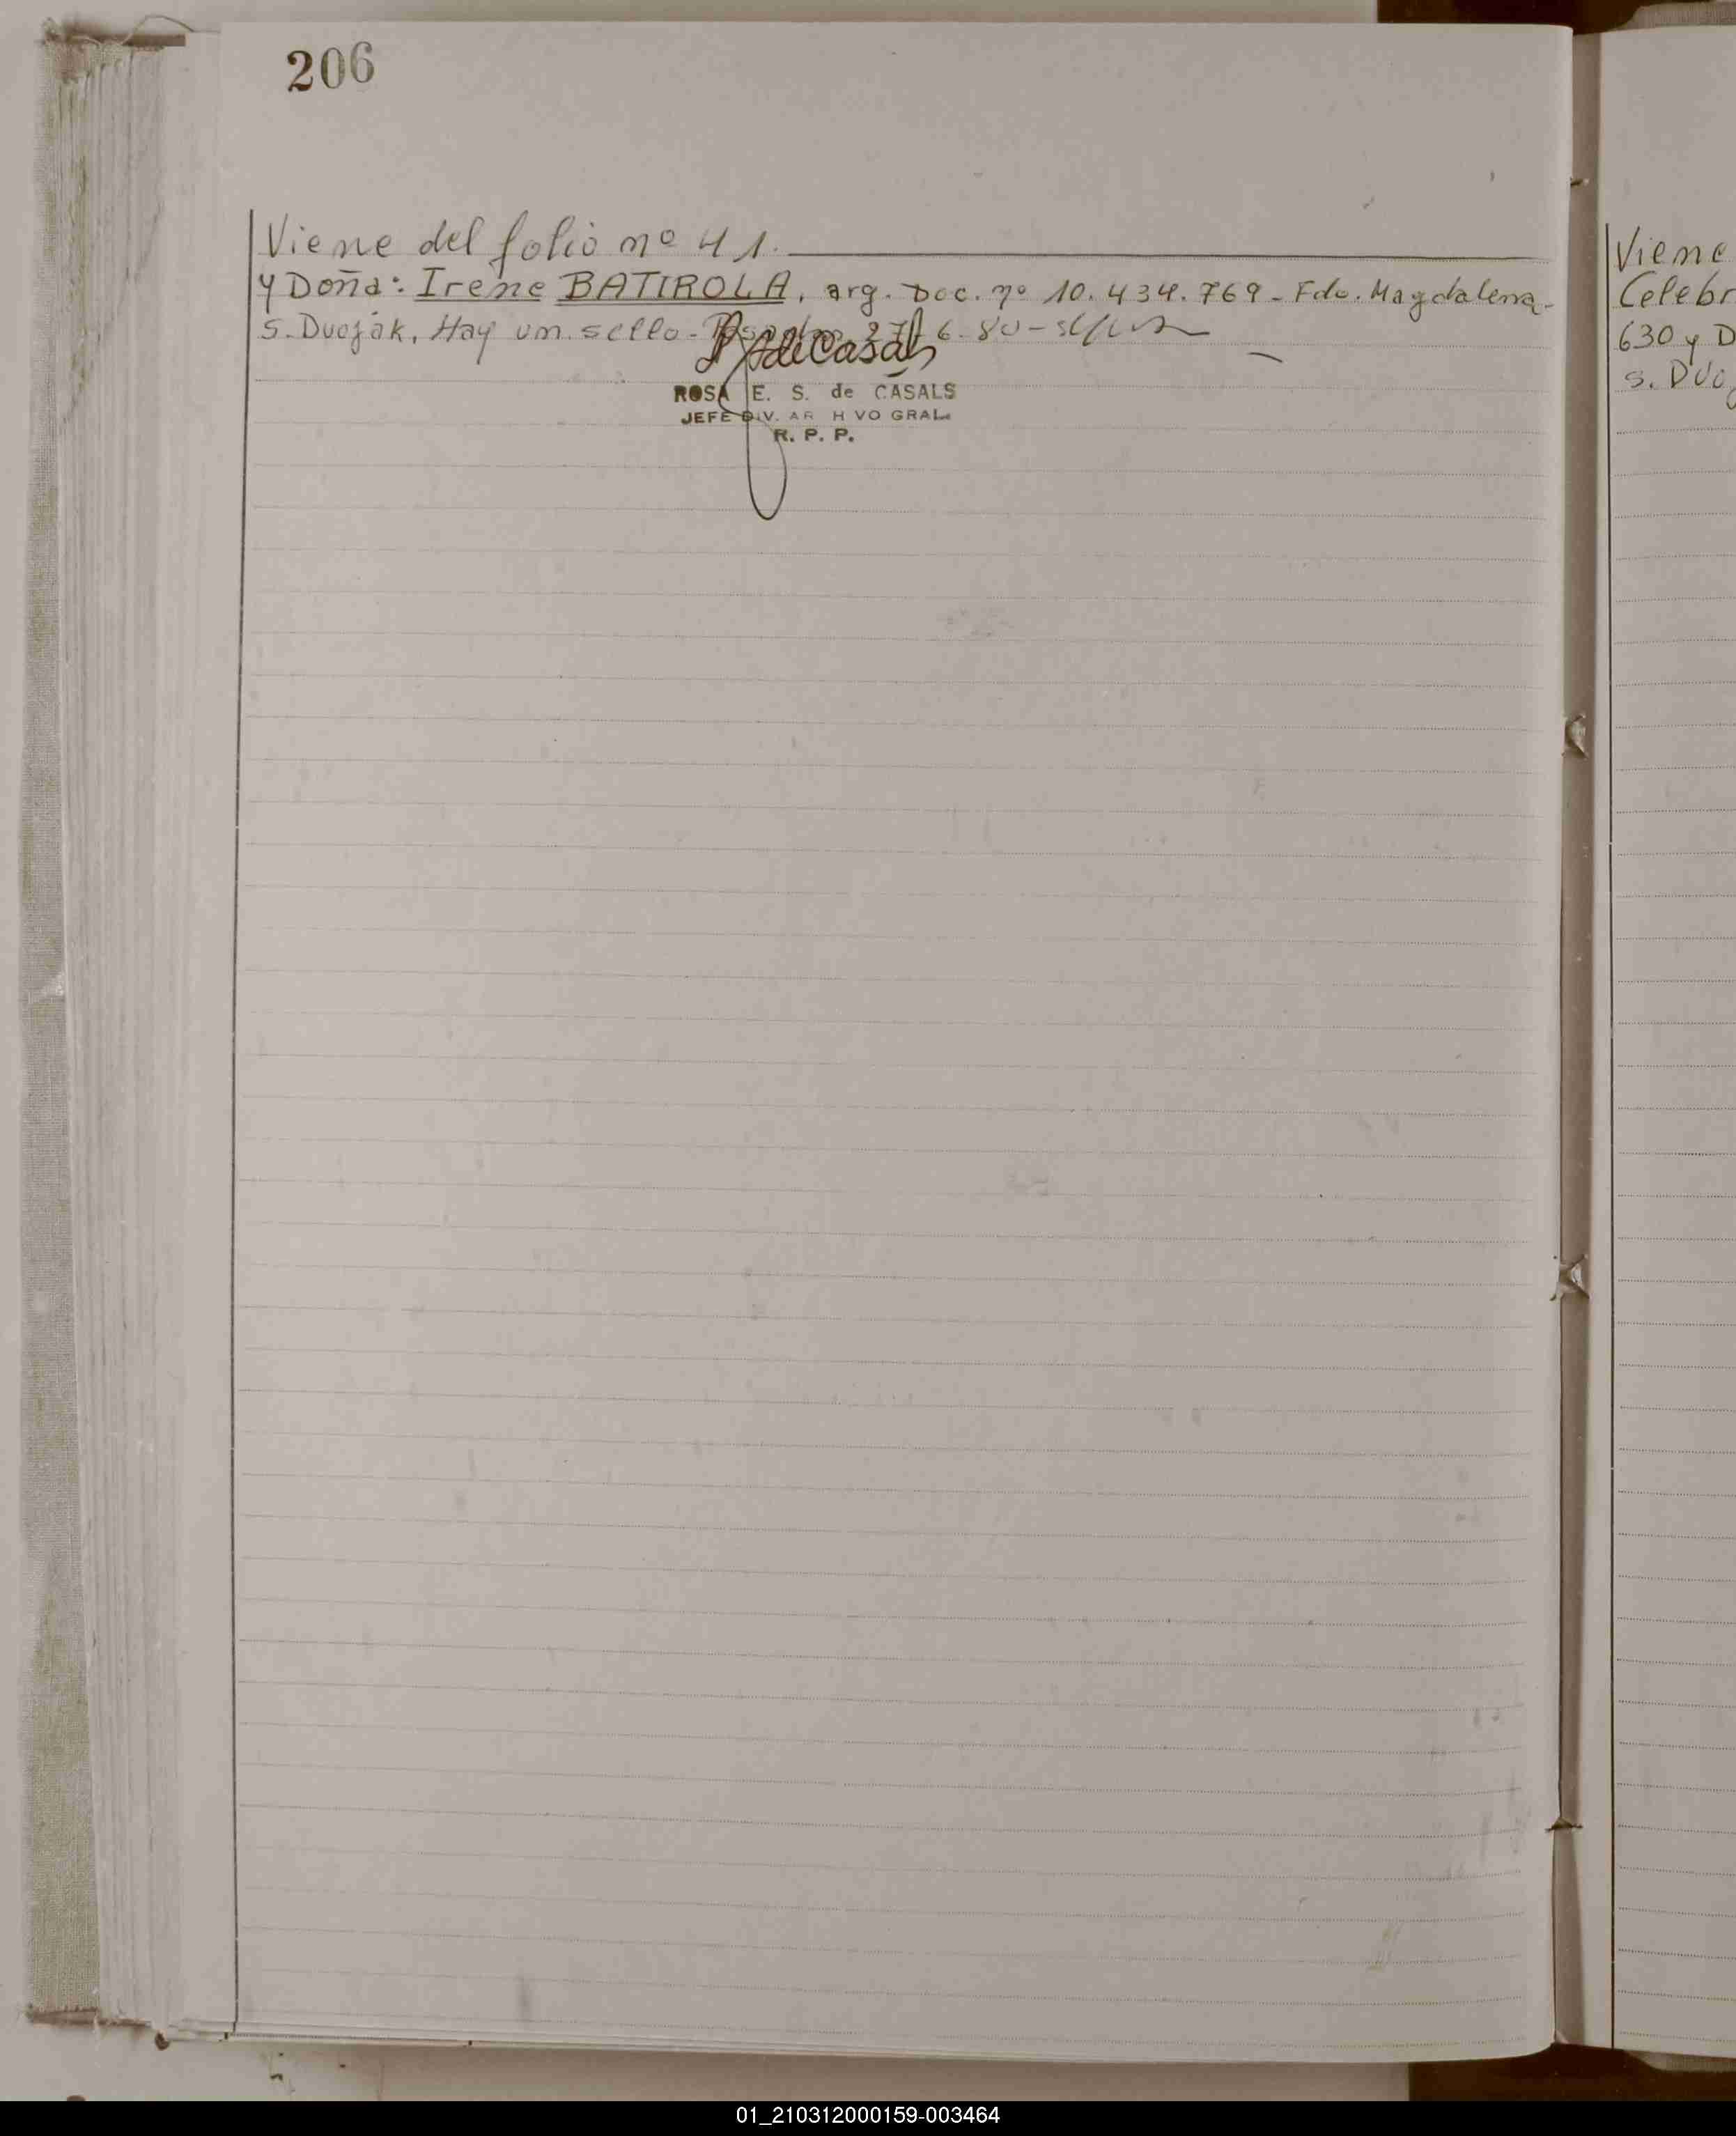 206
Viene del folio nº 41.
y Doña: Irene BATIROLA, arg. Doc. nº 10.434.769 - Fdo. Magdalena
S. Dvoják, Hay un. sello - 6-80 -
ROSA E. S. de CASALS
JEFE DIV. AR H VO GRAL.
R. P. P.
Viene
Celebr
630 y D
S. Dvo
01_210312000159-003464